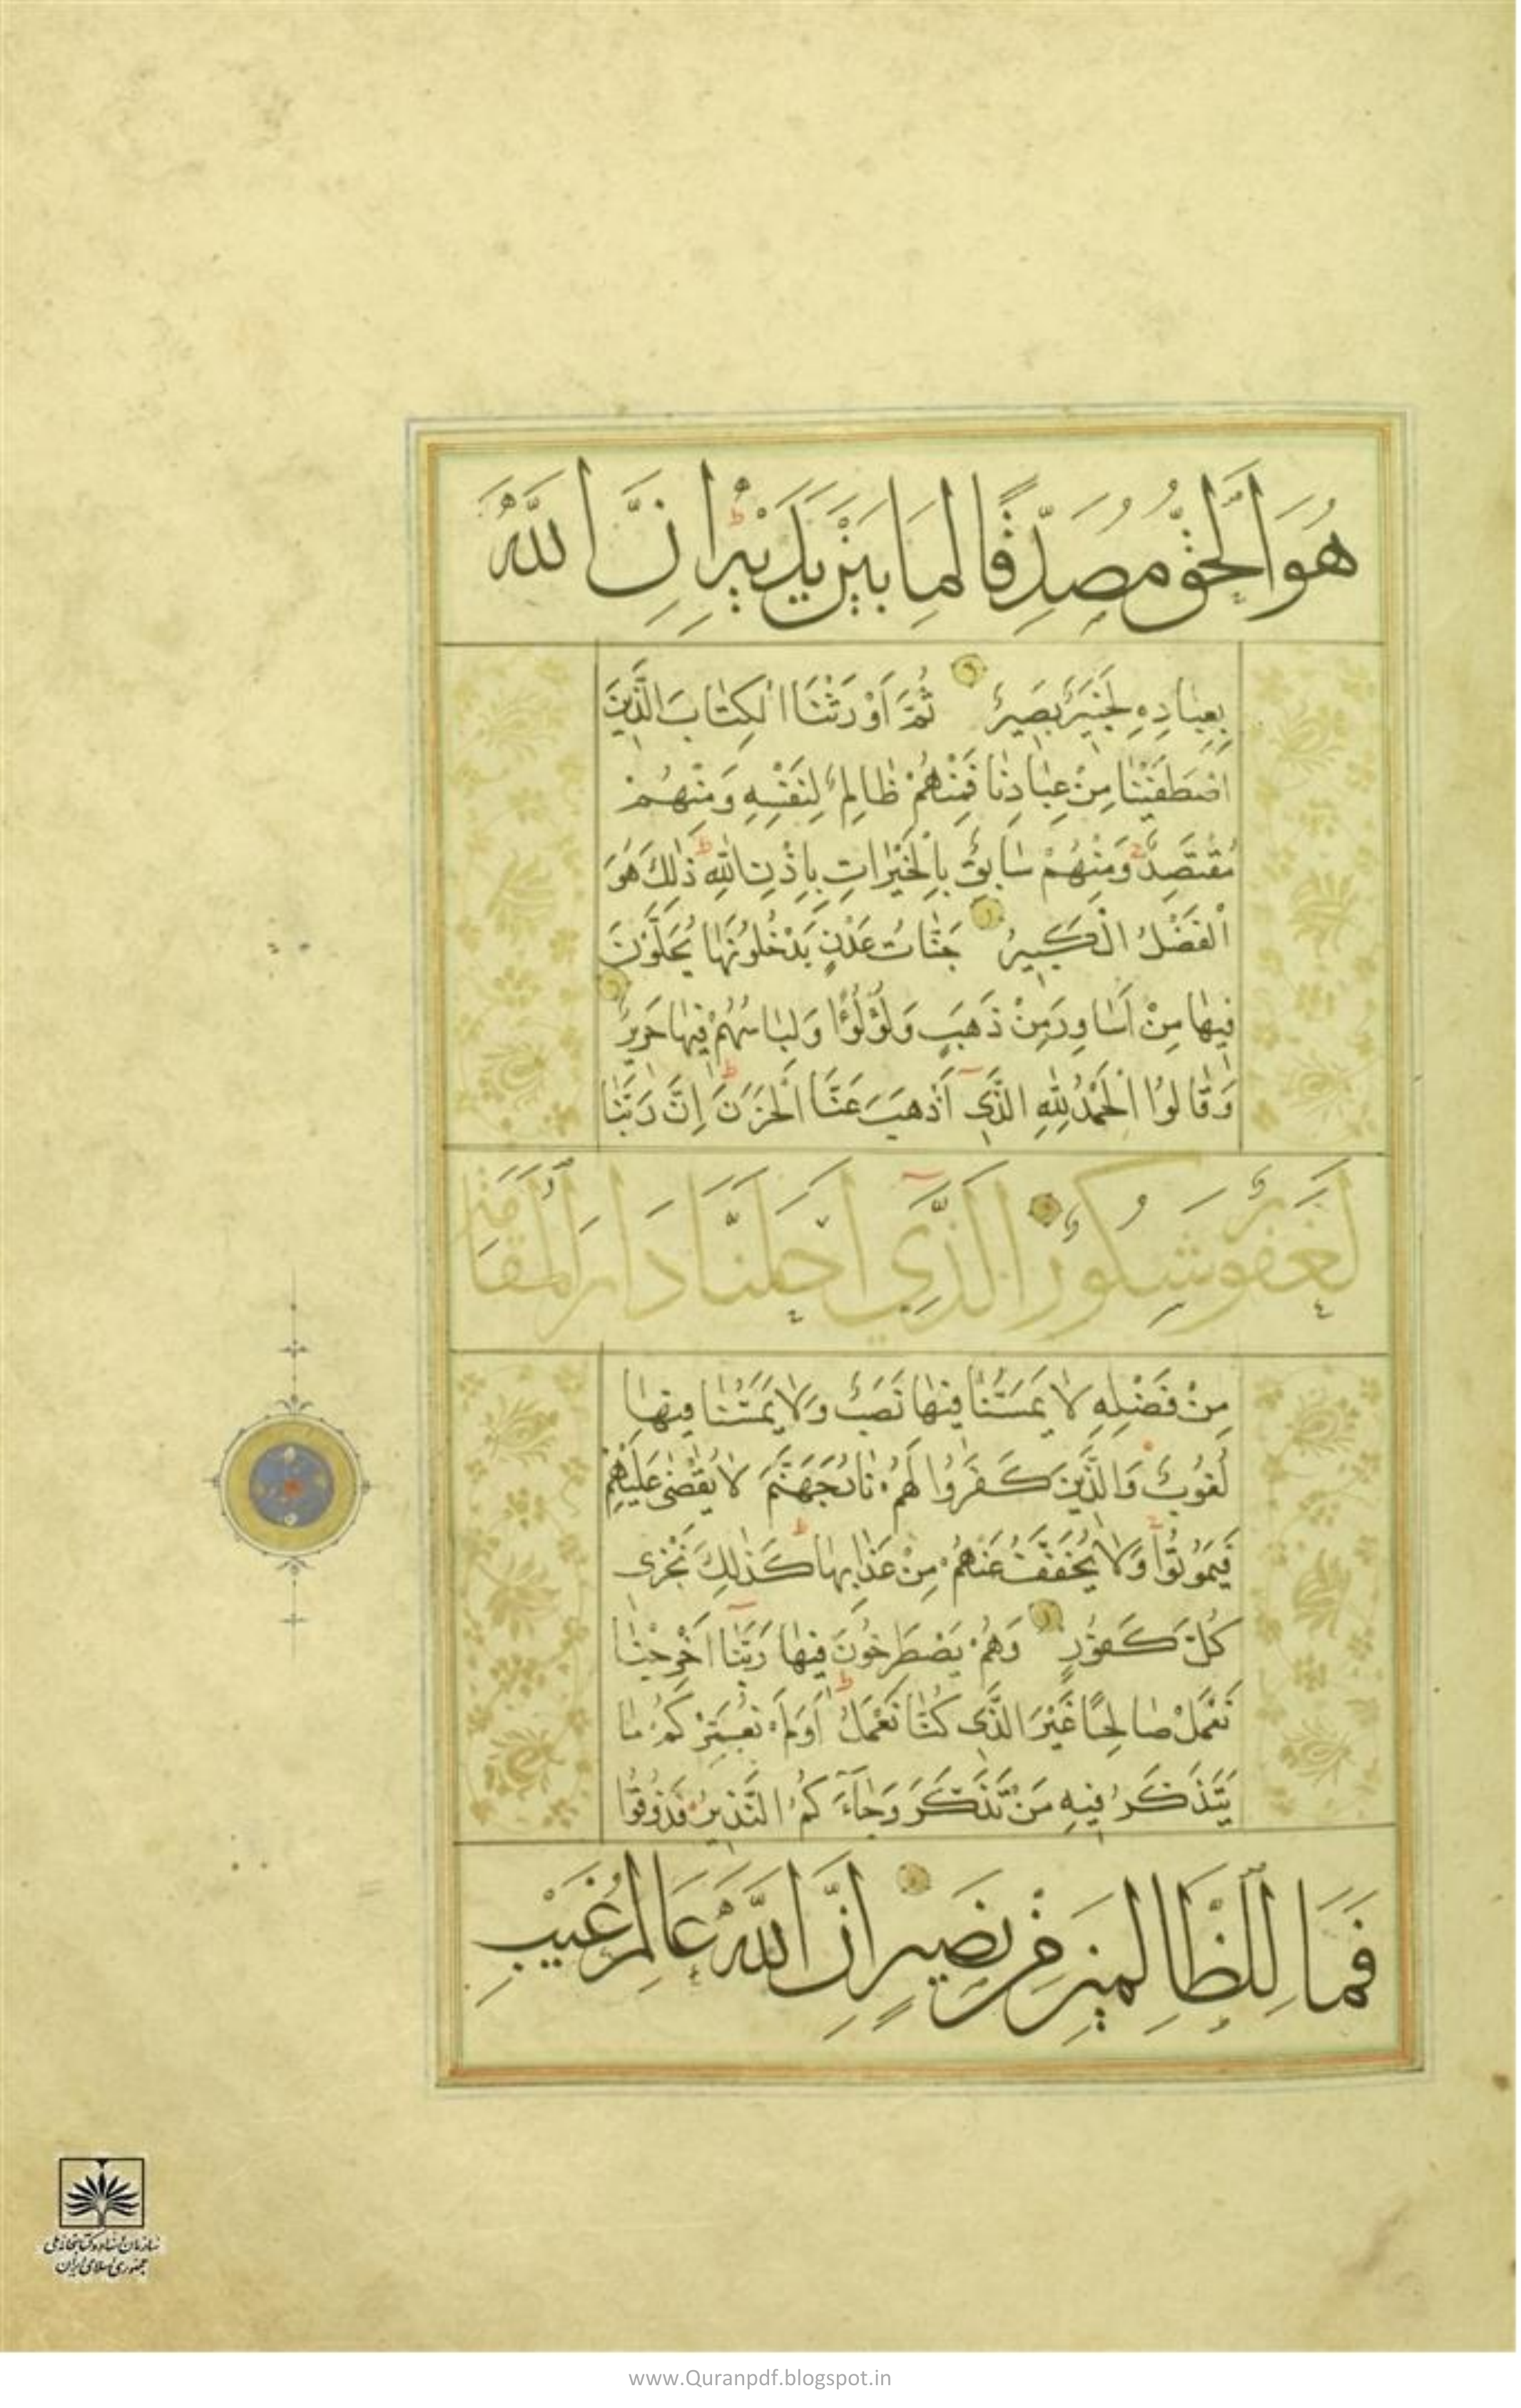 هُوَ الْحَقُّ مُصَدِّقًا لِمَا بَيْنَ يَدَيْهِ اِنَّ اللهَ
بِعِبَادِهِ لَخَبِيرٌ بَصِيرٌ ثُمَّ اَوْرَثْنَا الْكِتَابَ الَّذِينَ
اصْطَفَيْنَا مِنْ عِبَادِنَا فَمِنْهُمْ ظَالِمٌ لِنَفْسِهِ وَمِنْهُمْ
مُقْتَصِدٌ وَمِنْهُمْ سَابِقٌ بِالْخَيْرَاتِ بِاِذْنِ اللهِ ذٰلِكَ هُوَ
الْفَضْلُ الْكَبِيرُ جَنَّاتُ عَدْنٍ يَدْخُلُونَهَا يُحَلَّوْنَ
فِيهَا مِنْ اَسَاوِرَ مِنْ ذَهَبٍ وَلُؤْلُؤًا وَلِبَاسُهُمْ فِيهَا حَرِيرٌ
وَقَالُوا الْحَمْدُ لِلّٰهِ الَّذِي اَذْهَبَ عَنَّا الْحَزَنَ اِنَّ رَبَّنَا
لَغَفُورٌ شَكُورٌ الَّذِي اَحَلَّنَا دَارَ الْمُقَامَةِ
مِنْ فَضْلِهِ لَا يَمَسُّنَا فِيهَا نَصَبٌ وَلَا يَمَسُّنَا فِيهَا
لُغُوبٌ وَالَّذِينَ كَفَرُوا لَهُمْ نَارُ جَهَنَّمَ لَا يُقْضٰى عَلَيْهِمْ
فَيَمُوتُوا وَلَا يُخَفَّفُ عَنْهُمْ مِنْ عَذَابِهَا كَذٰلِكَ نَجْزِي
كُلَّ كَفُورٍ وَهُمْ يَصْطَرِخُونَ فِيهَا رَبَّنَا اَخْرِجْنَا
نَعْمَلْ صَالِحًا غَيْرَ الَّذِي كُنَّا نَعْمَلُ اَوَلَمْ نُعَمِّرْكُمْ مَا
يَتَذَكَّرُ فِيهِ مَنْ تَذَكَّرَ وَجَاءَكُمُ النَّذِيرُ فَذُوقُوا
فَمَا لِلظَّالِمِينَ مِنْ نَصِيرٍ اِنَّ اللهَ عَالِمُ غَيْبِ
سازمان اسناد و کتابخانه ملی
جمهوری اسلامی ایران
www.Quranpdf.blogspot.in